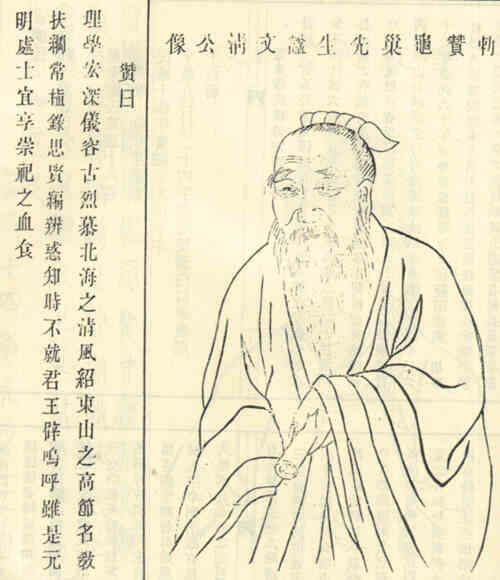 勅贊龜巢先生諡文淸公像
贊曰
理學宏深儀容古烈慕北海之淸風紹東山之高節名敎
扶綱常植錄思賢編辨惑知時不就君王辟嗚呼雖是元
明處士宜享崇祀之血食